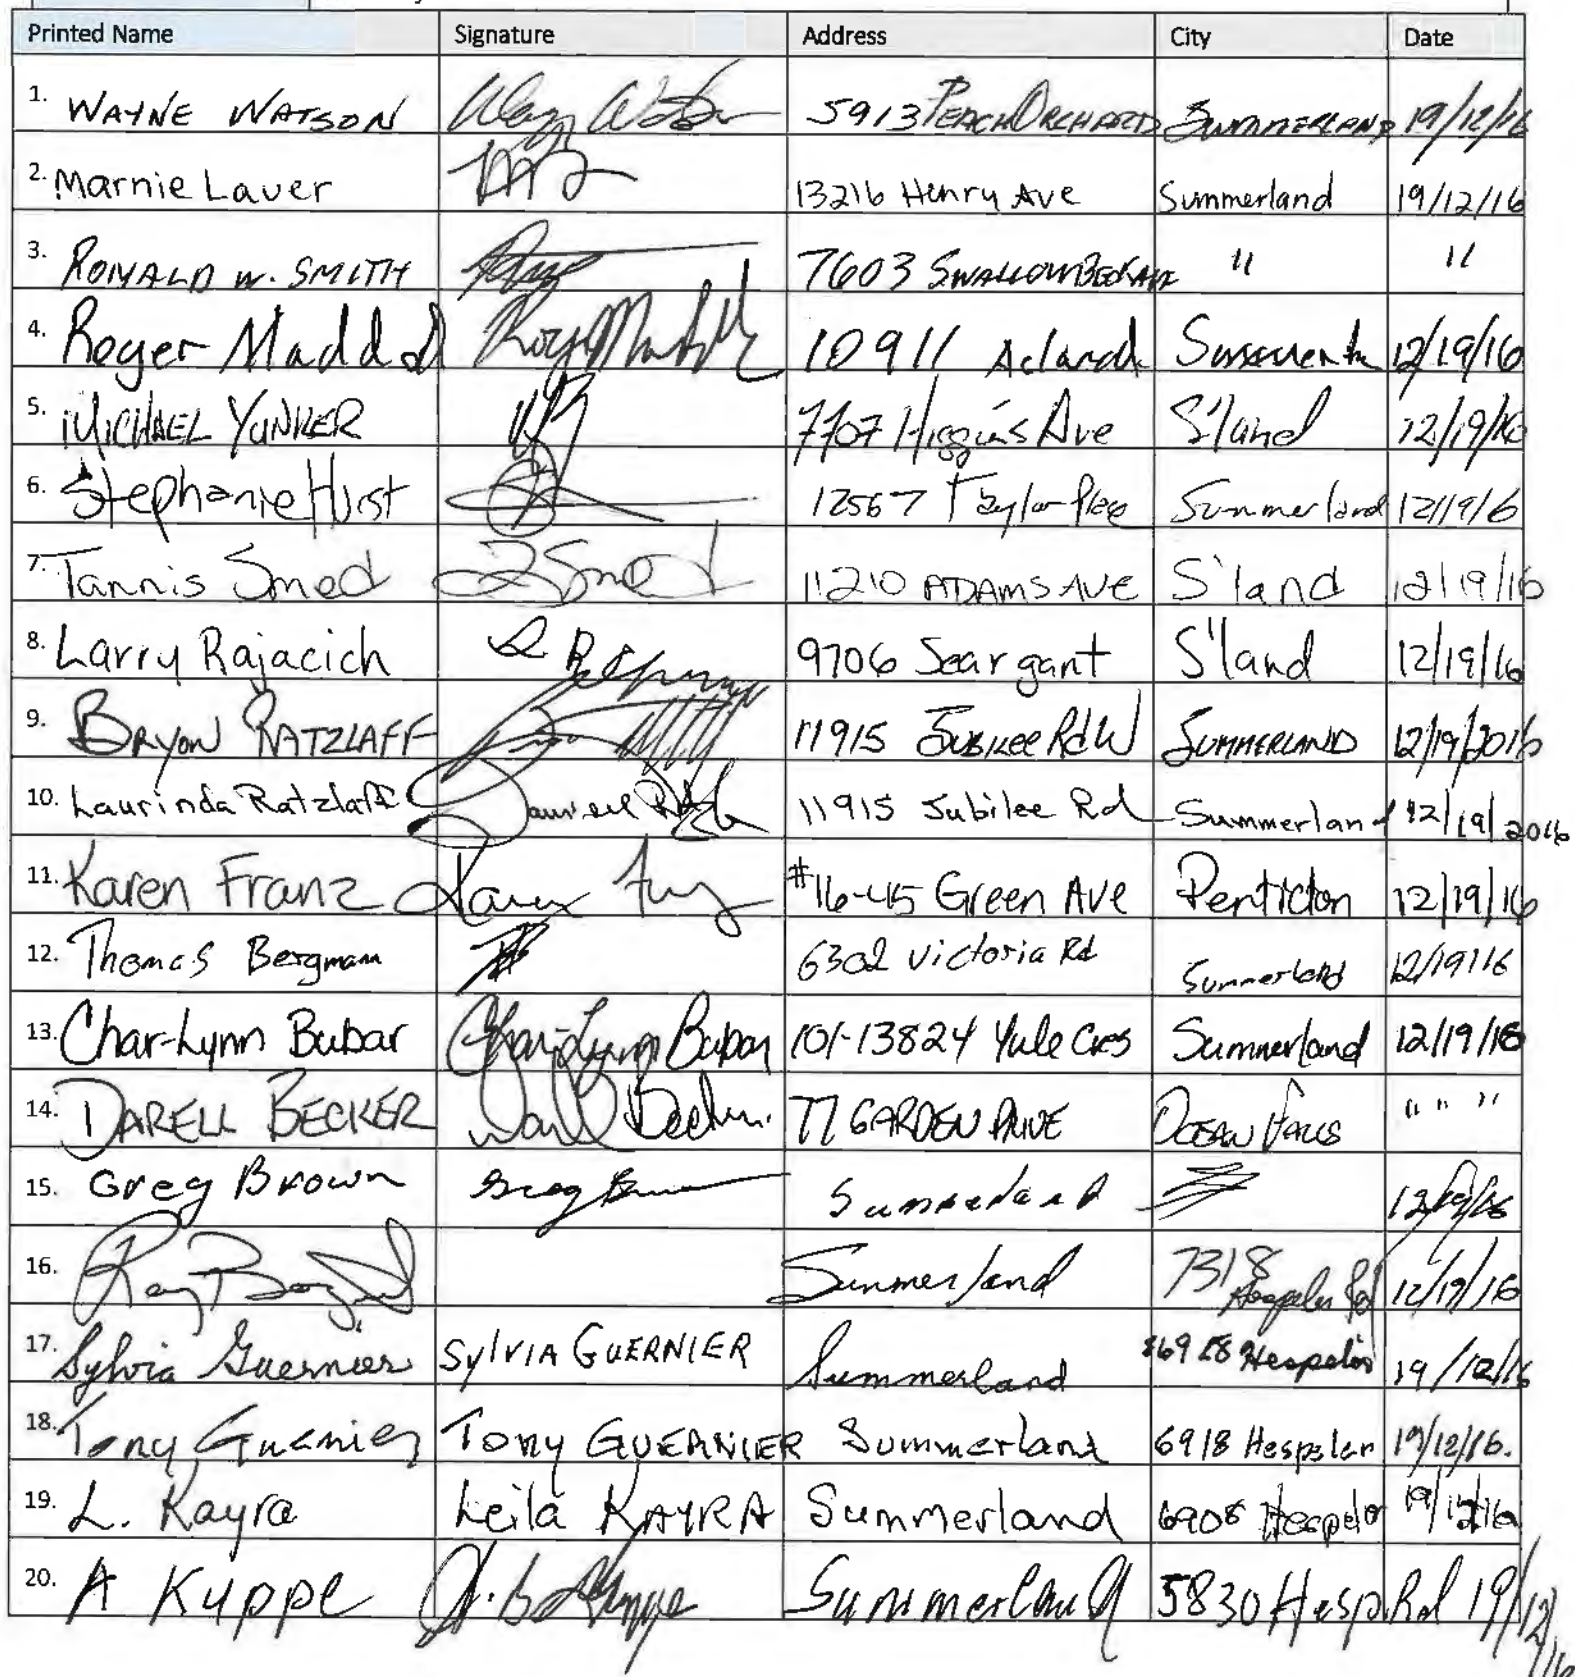 Printed Name Signature Address City Date
1. WAYNE WATSON 5913 PEACH ORCHARD SUMMERLAND 19/12/16
2. Marnie Lauer 13216 Henry Ave Summerland 19/12/16
3. RONALD W. SMITH 7603 " "
4. Roger 10911 Acland 12/19/16
5. MICHAEL YUNKER 7707 Higgins Ave S'land 12/19/16
6. Stephanie Hurst 12567 Taylor Place Summerland 12/19/16
7. Tannis Smed TSmed 11210 ADAMS AVE S'land 12/19/16
8. Larry Rajacich 9706 Seargant S'land 12/19/16
9. BRYON RATZLAFF 11915 JUBILEE Rd W SUMMERLAND 12/19/2016
10. Laurinda Ratzlaff 11915 Jubilee Rd Summerland 12/19/2016
11. Karen Franz Karen #16-45 Green Ave Penticton 12/19/16
12. Thomas Bergmann 6302 Victoria Rd Summerland 12/19/16
13. Char-Lynn Bubar Char-Lynn Bubar 101-13824 Yule Cres Summerland 12/19/16
14. DARELL BECKER 77 GARDEN DRIVE OCEAN FALLS " " "
15. Greg Brown Greg Summerland 12/19/16
16. Summerland 7318 Hespeler Rd 12/19/16
17. Sylvia Guernier SYLVIA GUERNIER Summerland Hespeler 19/12/16
18. Tony Guernier TONY GUERNIER Summerland 6918 Hespeler 19/12/16.
19. L. Kayra Leila KAYRA Summerland 6908 Hespeler 19/12/16
20. A Kuppe Summerland 5830 Hesp Rd 19/12/16